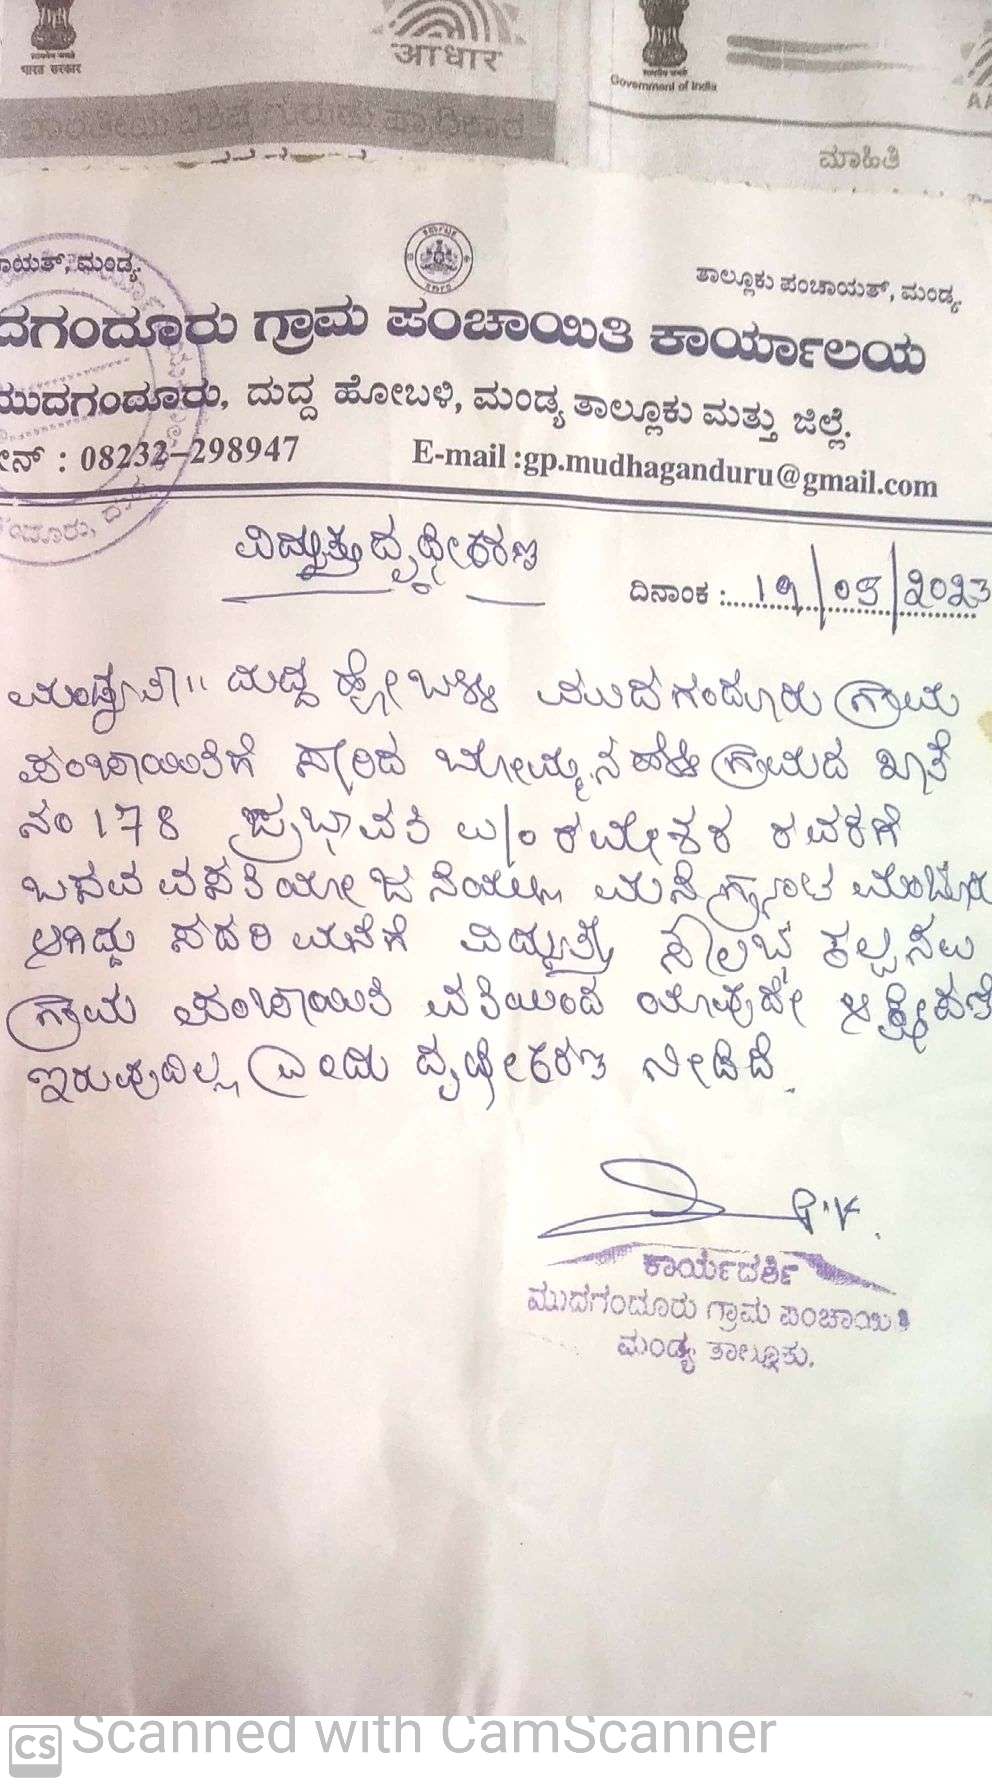 भारत सरकार
आधार
Government of India
ಮಾಹಿತಿ
ಾಯತ್, ಮಂಡ್ಯ.
ತಾಲ್ಲೂಕು ಪಂಚಾಯತ್, ಮಂಡ್ಯ
ದಗಂದೂರು ಗ್ರಾಮ ಪಂಚಾಯಿತಿ ಕಾರ್ಯಾಲಯ
ಮುದಗಂದೂರು, ದುದ್ದ ಹೋಬಳಿ, ಮಂಡ್ಯ ತಾಲ್ಲೂಕು ಮತ್ತು ಜಿಲ್ಲೆ.
ೋನ್ : 08232-298947 E-mail :gp.mudhaganduru@gmail.com
ವಿದ್ಯುತ್ತು ದೃಢೀಕರಣ
ದಿನಾಂಕ :
ಮಂಡ್ಯ ತಾ॥ ದುದ್ದ ಹೋಬಳಿ ಮುದಗಂದೂರು ಗ್ರಾಮ
ಪಂಚಾಯಿತಿಗೆ ಸೇರಿದ ಬೊಮ್ಮನಹಳ್ಳಿ ಗ್ರಾಮದ ಖಾತೆ
ನಂ 178 ಪ್ರಭಾವತಿ
ಬಸವ ವಸತಿ ಯೋಜನೆಯಲ್ಲಿ ಮನೆ ಮಂಜೂರು
ಆಗಿದ್ದು ಸದರಿ ಮನೆಗೆ ವಿದ್ಯುತ್ ಸೌಲಭ್ಯ ಕಲ್ಪಿಸಲು
ಗ್ರಾಮ ಪಂಚಾಯಿತಿ ವತಿಯಿಂದ ಯಾವುದೇ ಆಕ್ಷೇಪಣೆ
ಇರುವುದಿಲ್ಲ ಎಂದು ದೃಢೀಕರಣ ನೀಡಿದೆ.
ಕಾರ್ಯದರ್ಶಿ
ಮುದಗಂದೂರು ಗ್ರಾಮ ಪಂಚಾಯಿತಿ
ಮಂಡ್ಯ ತಾಲ್ಲೂಕು.
CS Scanned with CamScanner